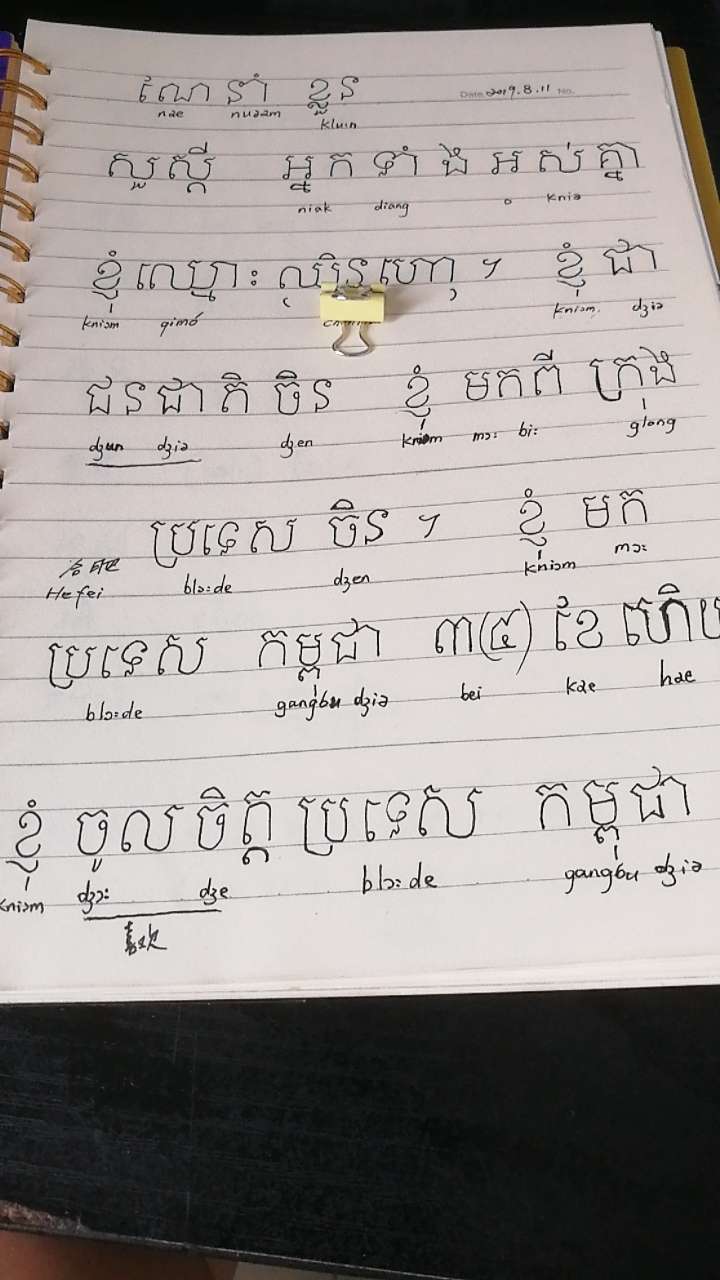 ណែនាំ ខ្លួន
Date 2019.8.11 No.
nae nuəam kluin
សួស្តី អ្នកទាំងអស់គ្នា
niak diang o kniə
ខ្ញុំឈ្មោះ ។ ខ្ញុំជា
kniɔm qimó kniɔm dʒiə
ជនជាតិ ចិន ខ្ញុំ មកពី ក្រុង
dʒun dʒiə dʒen kniɔm mɔː biː glong
ប្រទេស ចិន ។ ខ្ញុំ មក
合肥
Hefei blɔːde dʒen kniɔm mɔː
ប្រទេស កម្ពុជា ៣(៤) ខែ ហើយ
blɔːde gangbu dʒiə bei kae hae
ខ្ញុំ ចូលចិត្ត ប្រទេស កម្ពុជា
kniɔm dʒɔː dʒe blɔːde gangbu dʒiə
喜欢